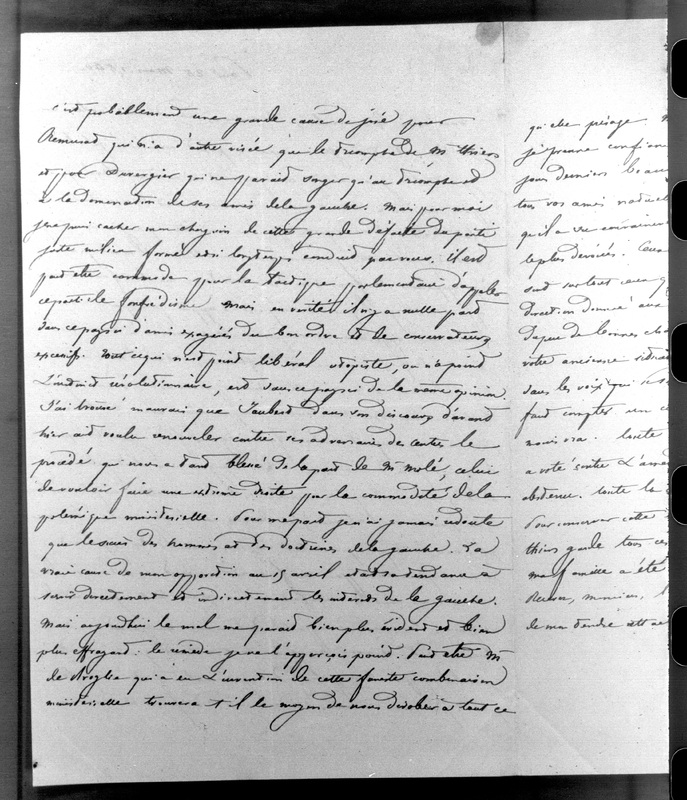 c'est probablement une grande cause de joie pour
Remusat qui n'a d'autre visée que le triomphe de Mr Thiers
et pour Duvergier qui ne parait songer qu'au triomphe et
à la domination de ses amis de la gauche. Mais pour moi
je ne puis cacher mon chagrin de cette grande défaite du parti
juste milieu formé et si longtemps conduit par vous. il est
peut etre commode pour la tactique parlementaire d'appeler
ce parti le
mais en verité il n'y a nulle part
dans ce pays ci d'amis exagérés du bon ordre et de conservateurs
excessifs. tout ce qui n'est point libéral utopiste, ou n'a point
l'instinct révolutionnaire, est dans ce pays ci de la même opinion.
J'ai trouvé mauvais que Jaubert dans son discours d'avant
hier ait voulu renouveler contre ses adversaires du centre le
procédé qui nous a tant blessé de la part de Mr Molé, celui
de vouloir faire une extreme droite pour la commodité de la
polémique ministerielle. Pour ma part je n'ai jamais redouté
que le succès des hommes et des doctrines de la gauche. La
vraie cause de mon opposition au 15 avril etait sa tendance à
servir directement et indirectement les interets de la gauche.
Mais aujourdhui le mal me parait bien plus évident et bien
plus effrayant: le remède je ne l'apperçois point. Peut etre Mr
de Broglie qui a eu l'invention de cette funeste combinaison
ministerielle trouvera t il le moyen de nous dérober à tout ce
qu'elle présage.
j'ai prenne confian
jours derniers beau
tous vos amis
qu'il a vu
les plus dévoués.
sont surtout ceux q
direction donnée aux
de bonnes
votre ancienne
dans les voix qui
faut compter un
a voté contre l'
abstenu. toute la
Pour conserver cette
thiers garde tous ces
ma famille a été
Monsieur, l
de mon tendre atta